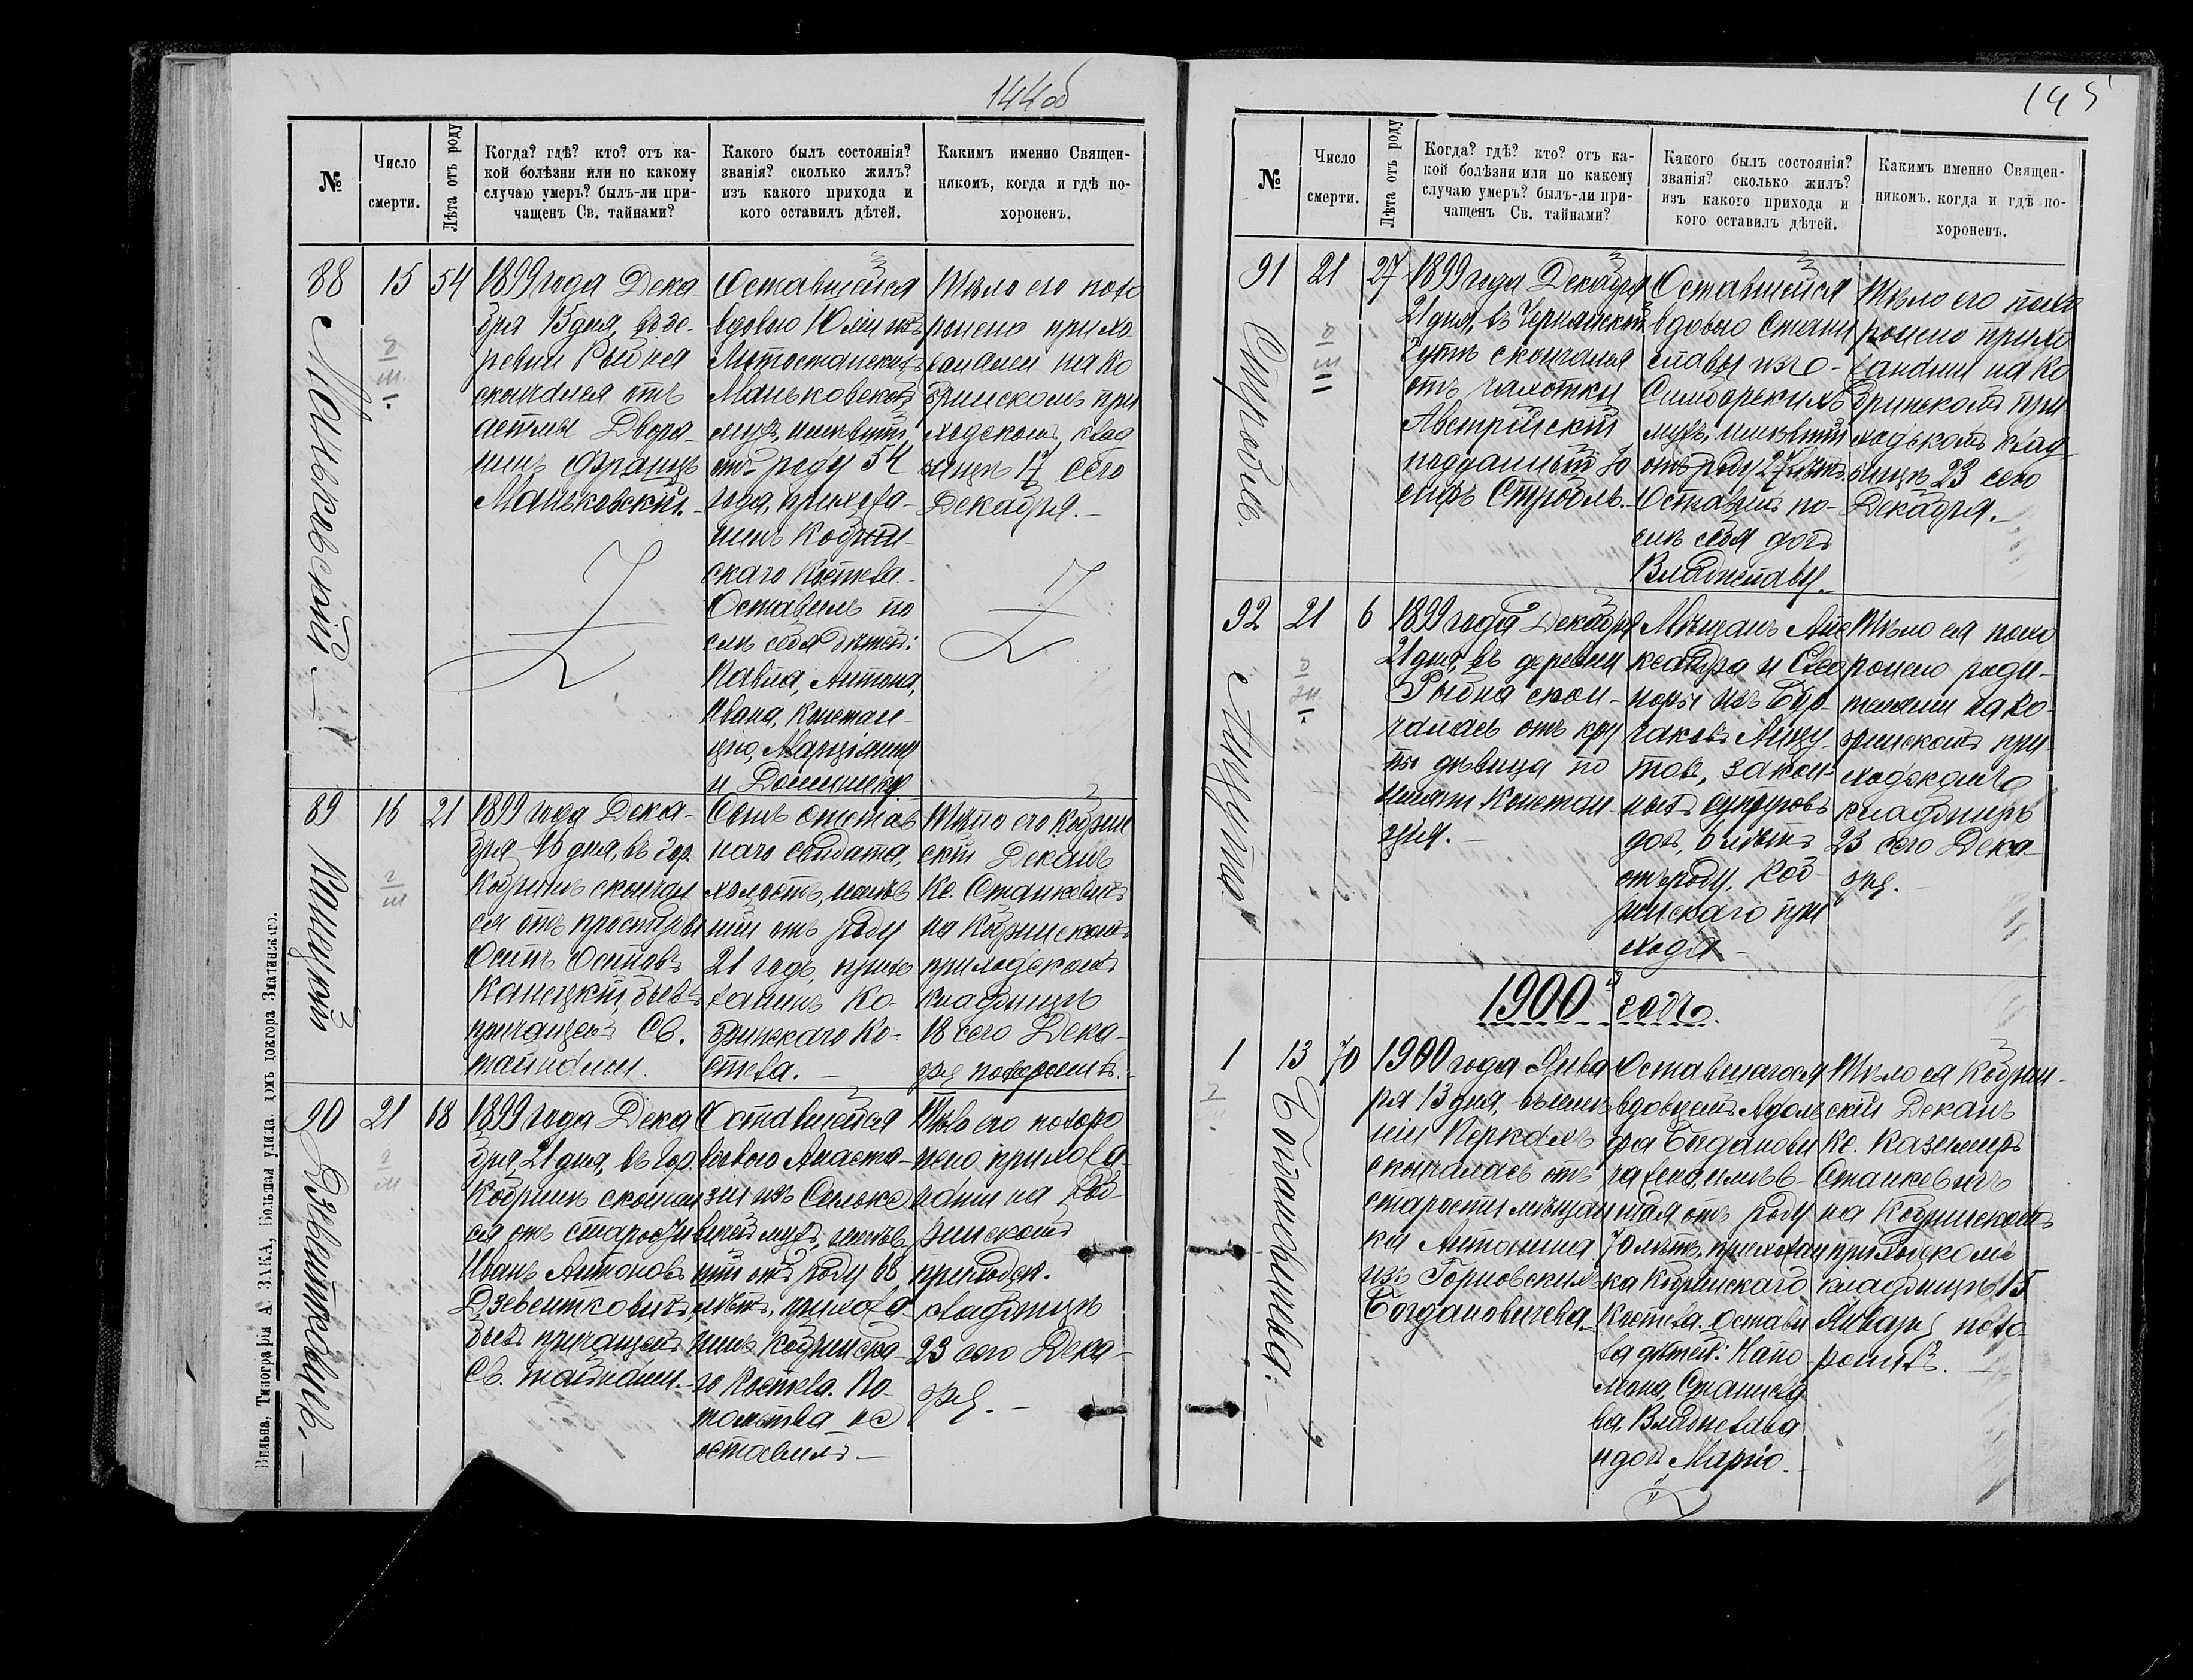 144об
№
Число
смерти.
Лѣта отъ роду
Когда? гдѣ? кто? отъ ка-
кой болѣзни или по какому
случаю умеръ? былъ-ли при-
чащенъ Св. тайнами?
Какого былъ состоянія?
званія? сколько жилъ?
изъ какого прихода и
кого оставилъ дѣтей.
Какимъ именно Священ-
никомъ, когда и гдѣ по-
хороненъ.
88
Маньковскій
15
54
1899 года Дека
бря 15 дня, въ де-
ревни Рыбна
скончался отъ
астмы Дворя-
нинъ Францъ
Маньковскій.
Оставшейся
вдовою Юліи изъ
Маньковской
мужъ, имѣвшій
отъ роду 54
года, прихожа-
нинъ Кобрин-
скаго Костела.
Оставилъ по
слѣ себя дѣтей:
Павла, Антона,
Ивана, Констан-
цію, Марціанну
и Доминику
Тѣло его похо
ронено прихо-
жанами на Ко
бринскомъ при
ходскомъ клад
бищѣ 17 сего
Декабря.-
89
Капецкій
16
21
1899 года Дека-
бря 16 дня, въ гор.
Кобринѣ скончал
ся отъ простуды
Осипъ Осиповъ
Капецкій, бывъ
причащенъ Св.
тайнами.
Сынъ отстав
наго солдата,
холостъ, имѣв
шій отъ роду
21 годъ, прихо
жанинъ Ко-
бринскаго Ко-
стела. -
Тѣло его Кобрин
скій Деканъ
Кс. Станкевичъ
на Кобринскомъ
приходскомъ
кладбищѣ
18 сего Дека-
бря похоронилъ.
90
Дзевентковичъ.
21
68
1899 года Дека
бря, 21 дня, въ гор.
Кобринѣ скончал
ся отъ старости
Иванъ Антоновъ
Дзевентковичъ,
бывъ причащенъ
Св. тайнами.-
Оставшейся
вдовою Анаста-
зіи изъ
мужъ, имѣв
шій отъ роду 68
лѣтъ, прихожа-
нинъ Кобринска-
го Костела. По-
томства не
оставилъ. -
Тѣло его похоро
нено прихожа-
нами на Коб-
ринскомъ
приходск.
кладбищѣ
23 сего Дека-
бря. -
Вильна, Типографія А. ЗАКА, Большая улица, домъ доктора
145
№
Число
смерти.
Лѣта отъ роду
Когда? гдѣ? кто? отъ ка-
кой болѣзни или по какому
случаю умеръ? былъ-ли при-
чащенъ Св. тайнами?
Какого былъ состоянія?
званія? сколько жилъ?
изъ какого прихода и
кого оставилъ дѣтей.
Какимъ именно Священ-
никомъ. когда и гдѣ по-
хороненъ.
91
Стробль.
21
27
1899 года Декабря
21 дня, въ
скончался
отъ чахотки
Австрійскій
подданный Іо
сифъ Стробль.-
Оставшейся
вдовою Стани
славы изъ
мужъ, имѣвшій
отъ роду 27 лѣтъ.
Оставилъ по-
слѣ себя дочь
Владиславу.
Тѣло его похо
ронено прихо
жанами на Ко
бринскомъ при
ходскомъ клад-
бищѣ 23 сего
Декабря.-
92
21
6
1899 года Декабря
21 дня, въ деревни
Рыбна скон-
чалась отъ кру
па дѣвица по
имяни Констан
ція. -
Мѣщанъ Але
ксандра и
изъ Бур-
чаковъ
закон-
ныхъ супруговъ
дочь, 6 лѣтъ
отъ роду, Коб-
ринскаго при
хода -
Тѣло ея похо
ронено роди-
телями на Ко-
бринскомъ при-
ходскомъ
кладбищѣ
23 сего Дека-
бря.
1900й годъ.
1
Богдановичева.-
13
70
1900 года Янва
ря 13 дня, въ имѣ
ніи Перкахъ
скончалась отъ
старости мѣщан
ка Антонина
изъ Горновскихъ
Богдановичева.-
Оставшагося
вдовцемъ Адоль
фа Богданови
ча жена, имѣв-
шая отъ роду
70 лѣтъ, прихожан
ка Кобринскаго
Костела. Остави
ла дѣтей: Напо
леона, Станисла
ва, Владислава
и дочь Марію.
Тѣло ея Кобрин-
скій Деканъ
Кс. Казимиръ
Станкевичъ
на Кобринскомъ
приходскомъ
кладбищѣ 15
Января похо
ронилъ. -